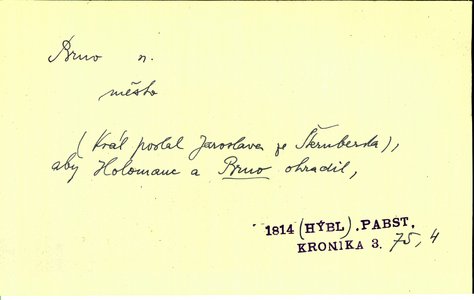 Brno n.
město
(Král poslal Jaroslava ze Šternberka),
aby Holomauc a Brno ohradil,
1814 (HÝBL) . PABST,
KRONIKA 3. 75, 4